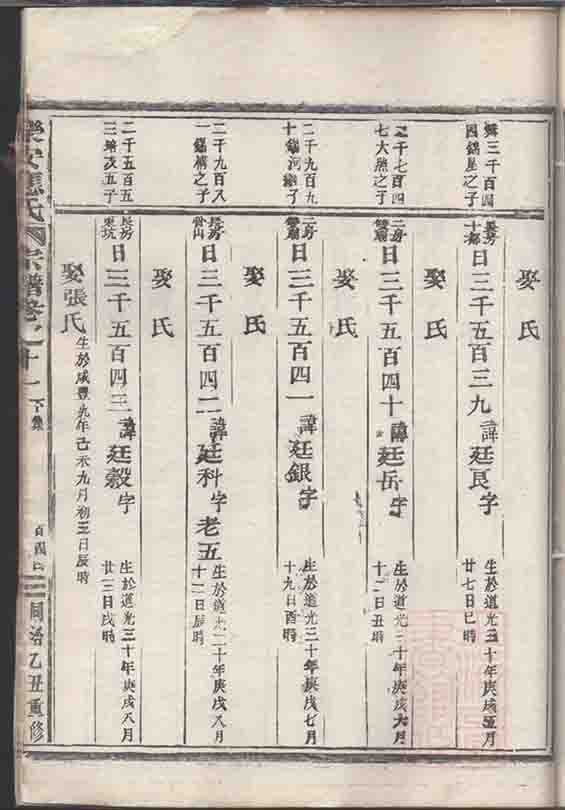 娶氏
三千百四
之子
長房
日三千五百三九諱廷良字
生於道光三十年庚戌五月
廿七日巳時
娶氏
二千七百四
七大熊之子
二房
日三千五百四十諱廷岳字
生於道光三十年庚戌六月
十二日丑時
娶氏
二千九百九
二房
日三千五百四一諱廷銀字
生於道光三十年庚戌七月
十九日酉時
娶氏
二千九百八
之子
長房
日三千五百四二諱廷科字老五
生於道光三十年庚戌八月
十二日辰時
娶氏
二千五百五
次五子
長房
東坑
日三千五百四三諱廷穀字
生於道光三十年庚戌八月
廿三日戌時
娶張氏
生於咸豐九年己未九月初三日辰時
氏宗譜卷之十一
下集
同治乙丑重修